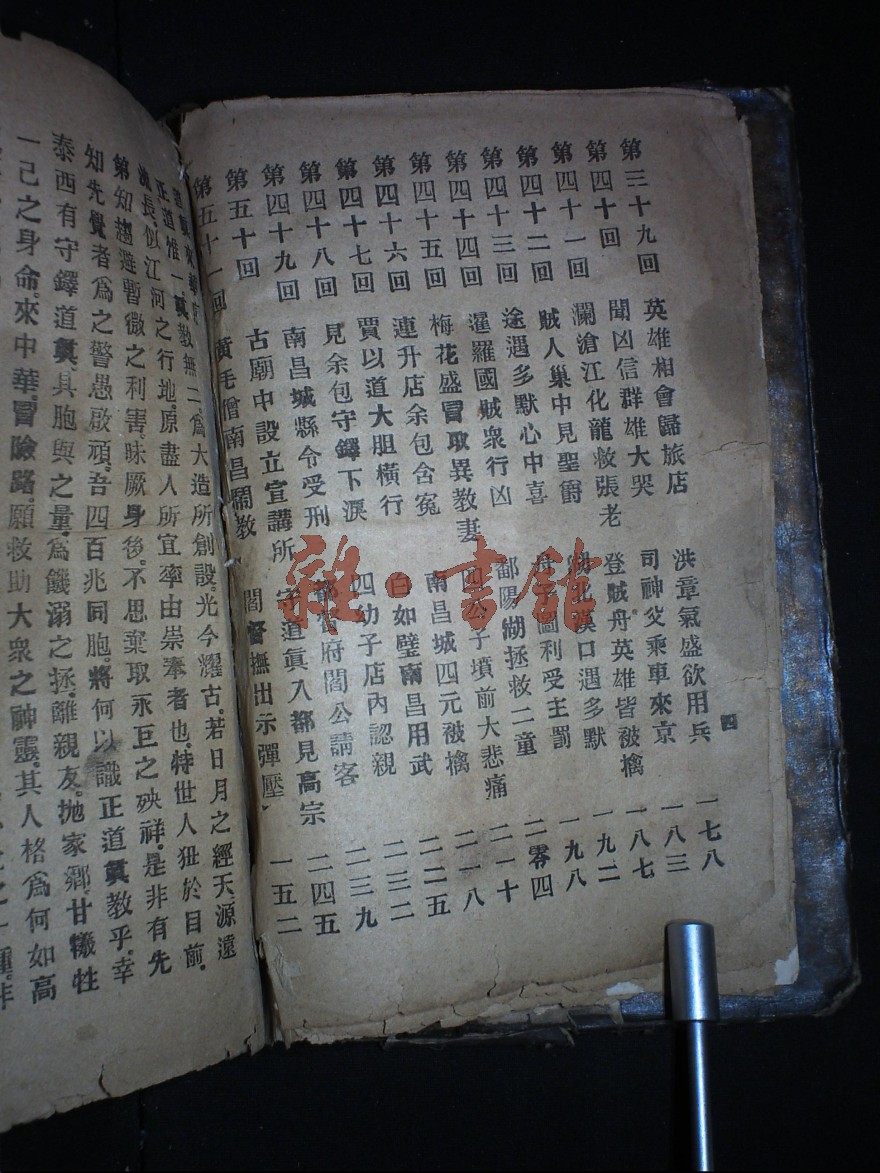 四
第三十九回 英雄相會歸旅店 洪章氣盛欲用兵 一七八
第四十回 聞凶信群雄大哭 司神父乘車來京 一八三
第四十一回 瀾滄江化龍救張老 登賊舟英雄皆被擒 一八七
第四十二回 賊人巢中見聖爵 北漢口遇多默 一九二
第四十三回 途遇多默心中喜 子圖利受主罰 一九八
第四十四回 暹羅國賊衆行凶 鄱陽湖拯救二童 二零四
第四十五回 梅花盛冒取異教妻 四公子墳前大悲痛 二一十
第四十六回 連升店余包含冤 南昌城四元被擒 二一八
第四十七回 賈以道大胆橫行 白如璧南昌用武 二二五
第四十八回 見余包守鐸下淚 四幼子店內認親 二三二
第四十九回 南昌城縣令受刑 督府閻公請客 二三九
第五十回 古廟中設立宣講所 守道眞入都見高宗 二四五
第五十一回 黃毛僧南昌鬧教 閻督撫出示彈壓 一五二
正道惟一眞教無二爲大造所創設。光今濯古。若日月之經天。源遠
流長。似江河之行地。原盡人所宜率由崇奉者也。特世人狃於目前。
第知趨避暫微之利害。昧厥身後。不思棄取永巨之殃祥。是非有先
知先覺者爲之警愚啟頑。吾四百兆同胞。將何以識正道眞敎乎。幸
泰西有守鐸道眞。具胞與之量。爲饑溺之拯。離親友。抛家鄉。甘犧牲
一己之身命。來中華。冒險路。願救助大衆之神靈。其人格爲何如高
雜·書館